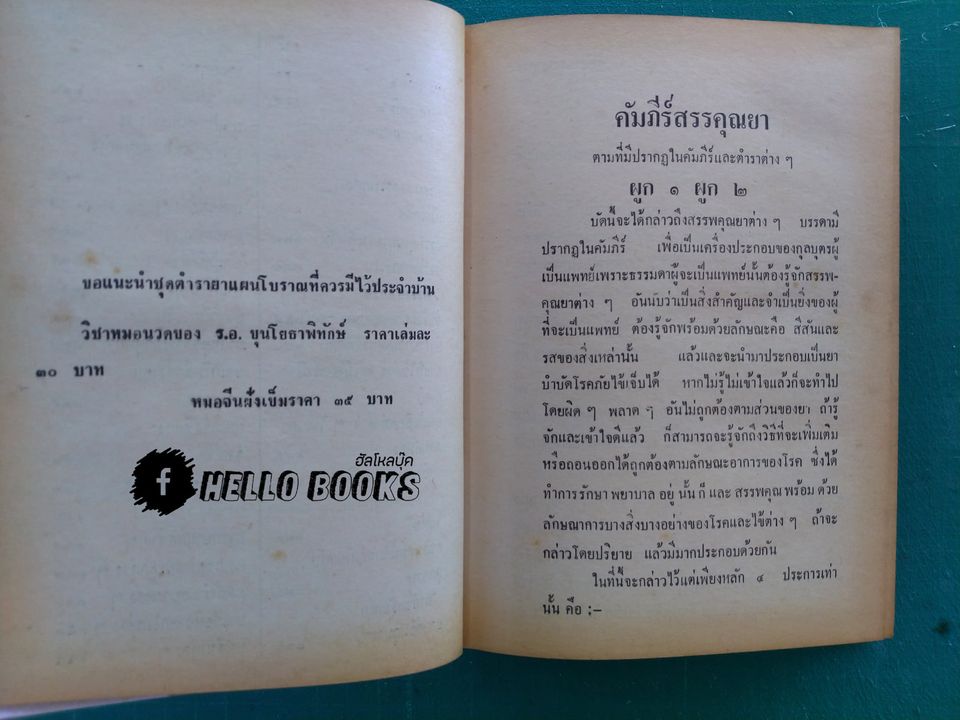 ขอแนะนำชุดตำรายาแผนโบราณที่ควรมีไว้ประจำบ้าน
วิชาหมอนวดของ ร.อ. ขุนโยธาพิทักษ์ ราคาเล่มละ
๓๐ บาท
หมอจีนฝั่งเข็มราคา ๓๕ บาท
ฮัลโหลบุ๊ค
f HELLO BOOKS
คัมภีร์สรรคุณยา
ตามที่มีปรากฏในคัมภีร์และตำราต่าง ๆ
ผูก ๑ ผูก ๒
บัดนี้จะได้กล่าวถึงสรรพคุณยาต่าง ๆ บรรดามี
ปรากฏในคัมภีร์ เพื่อเป็นเครื่องประกอบของกุลบุตรผู้
เป็นแพทย์เพราะธรรมดาผู้จะเป็นแพทย์นั้นต้องรู้จักสรรพ-
คุณยาต่าง ๆ อันนับว่าเป็นสิ่งสำคัญและจำเป็นยิ่งของผู้
ที่จะเป็นแพทย์ ต้องรู้จักพร้อมด้วยลักษณะคือ สีสันและ
รสของสิ่งเหล่านั้น แล้วและจะนำมาประกอบเป็นยา
บำบัดโรคภัยไข้เจ็บได้ หากไม่รู้ไม่เข้าใจแล้วก็จะทำไป
โดยผิด ๆ พลาด ๆ อันไม่ถูกต้องตามส่วนของยา ถ้ารู้
จักและเข้าใจดีแล้ว ก็สามารถจะรู้จักถึงวิธีที่จะเพิ่มเติม
หรือถอนออกได้ถูกต้องตามลักษณะอาการของโรค ซึ่งได้
ทำการรักษา พยาบาล อยู่ นั้น ก็ และ สรรพคุณ พร้อม ด้วย
ลักษณาการบางสิ่งบางอย่างของโรคและไข้ต่าง ๆ ถ้าจะ
กล่าวโดยปริยาย แล้วมีมากประกอบด้วยกัน
ในที่นี้จะกล่าวไว้แต่เพียงหลัก ๔ ประการเท่า
นั้น คือ ;–